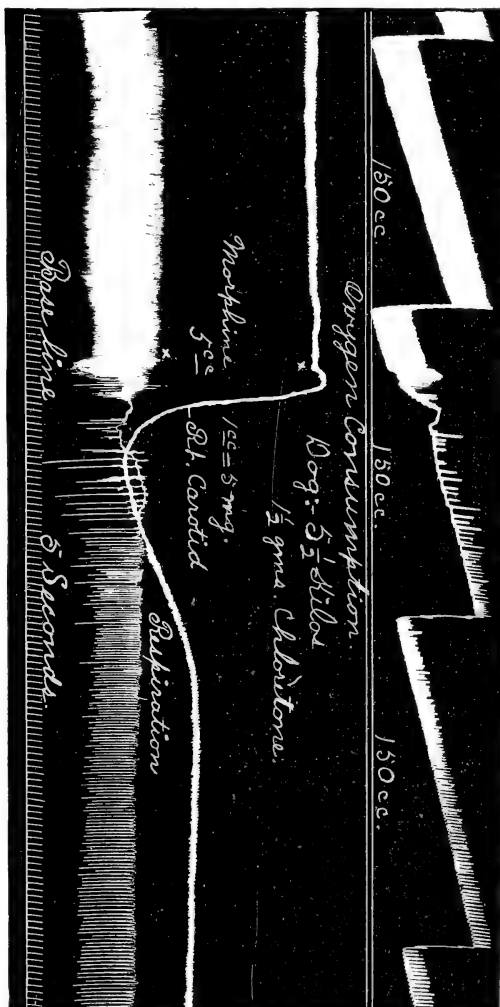 150 cc.
150 cc.
150 cc.
Oxygen Consumption.
Dog:- 5½ Kilos
1½ gms. Chloretone.
x
Morphine 1cc = 5 mg.
5cc Rt. Carotid -
x
Respiration
Base line
5 Seconds.